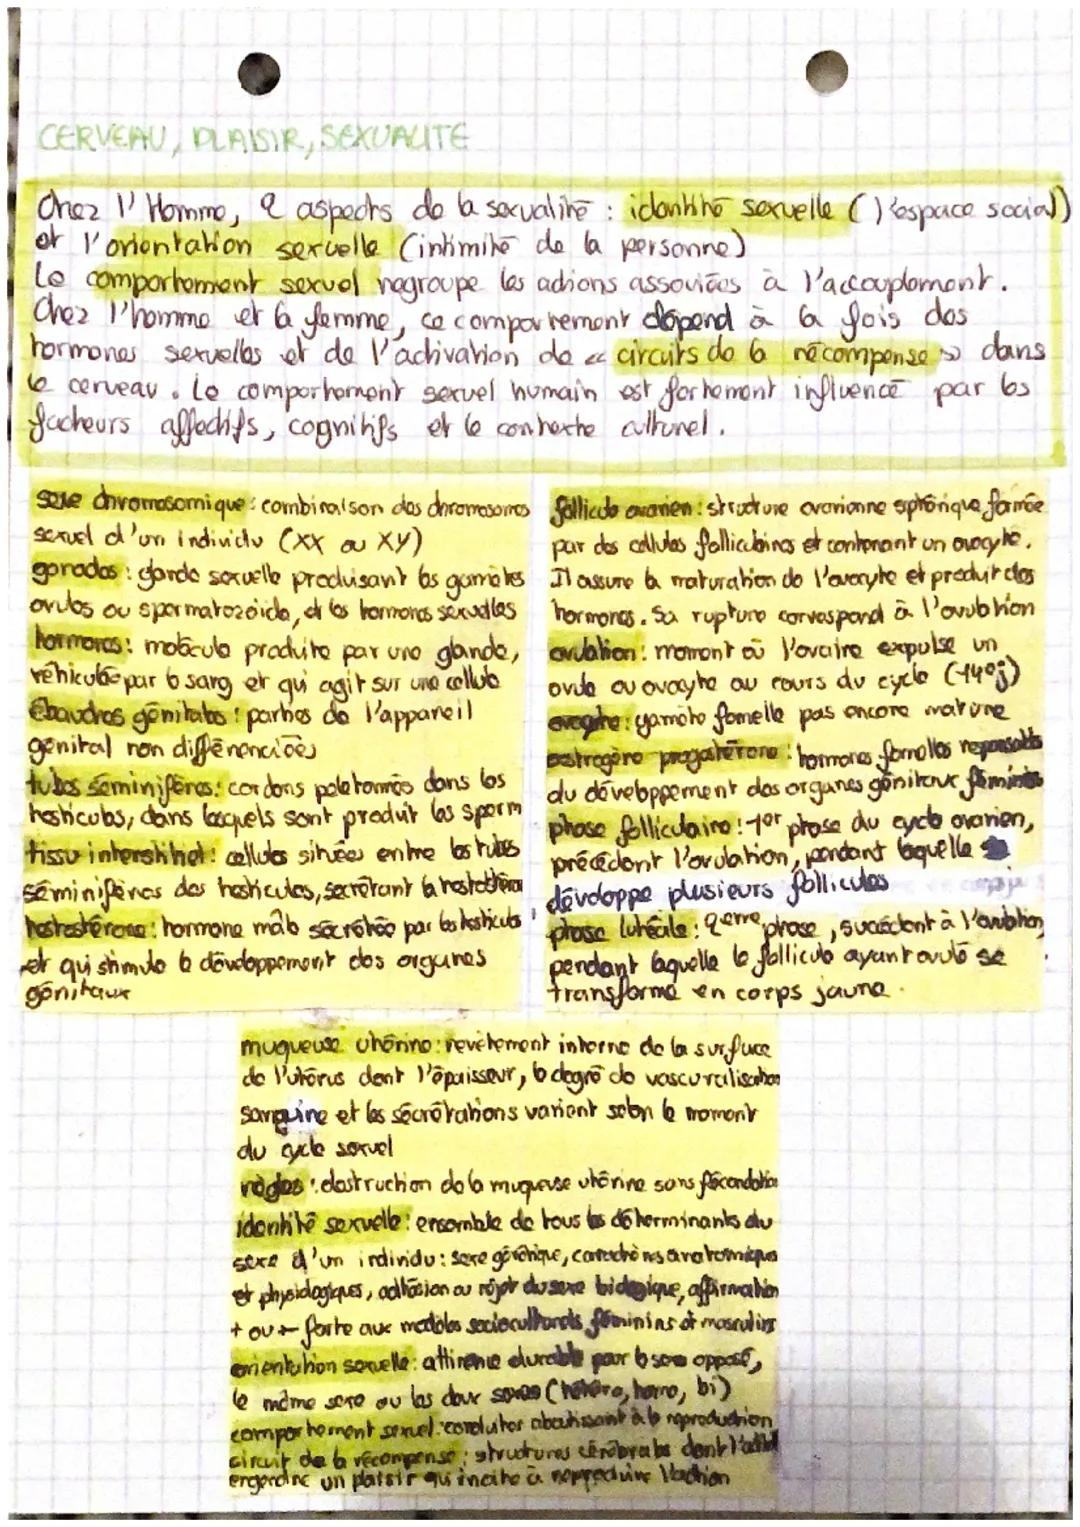 CERVEAU, PLAISIR, SEXUALITE
Chez l'Homme, 2 aspects de la sexualité : identité sexuelle (l'espace social)
et l'orientation sexuelle (intimité de la personne)
Le comportement sexuel regroupe les actions associées à l'accouplement.
Chez l'homme et la femme, ce comportement dépend à la fois des
hormones sexuelles et de l'activation de « circuits de la récompense » dans
le cerveau. Le comportement sexuel humain est fortement influencé par les
facteurs affectifs, cognitifs et le contexte culturel.
sexe chromosomique : combinaison des chromosomes
sexuel d'un individu (XX ou XY)
gonades : glande sexuelle produisant les gamètes
ovules ou spermatozoïde, et les hormones sexuelles
hormones : molécule produite par une glande,
véhiculée par le sang et qui agit sur une cellule
Ebauches génitales : parties de l'appareil
génital non différenciées
tubes séminifères : cordons pelotonnés dans les
testicules, dans lesquels sont produit les sperm
tissu interstitiel : cellules situées entre les tubes
séminifères des testicules, secrétant la testostérone
testostérone : hormone mâle sécrétée par les testicules
et qui stimule le développement des organes
génitaux
follicule ovarien : structure ovarienne sphérique formée
par des cellules folliculaires et contenant un ovocyte.
Il assure la maturation de l'ovocyte et produit des
hormones. Sa rupture correspond à l'ovulation
ovulation : moment où l'ovaire expulse un
ovule ou ovocyte au cours du cycle (14e j)
ovocyte : gamète femelle pas encore mature
oestrogène progestérone : hormones femelles responsables
du développement des organes génitaux féminins
phase folliculaire : 1er phase du cycle ovarien,
précédant l'ovulation, pendant laquelle se
développe plusieurs follicules
phase lutéale : 2eme phase, succédant à l'ovulation,
pendant laquelle le follicule ayant ovulé se
transforme en corps jaune.
muqueuse utérine : revêtement interne de la surface
de l'utérus dont l'épaisseur, le degré de vascuralisation
sanguine et les sécrétations varient selon le moment
du cycle sexuel
règles : destruction de la muqueuse utérine sans fécondation
identité sexuelle : ensemble de tous les déterminants du
sexe d'un individu : sexe génétique, caractères anatomiques
et physiologiques, adhésion ou rejet du sexe biologique, affirmation
+ ou - forte aux modèles socioculturels féminins et masculins
orientation sexuelle : attirance durable pour le sexe opposé,
le même sexe ou les deux sexes (hétéro, homo, bi)
comportement sexuel : conduites aboutissant à la reproduction
circuit de la récompense : structures cérébrales dont
engendre un plaisir qui incite à reproduire l'action